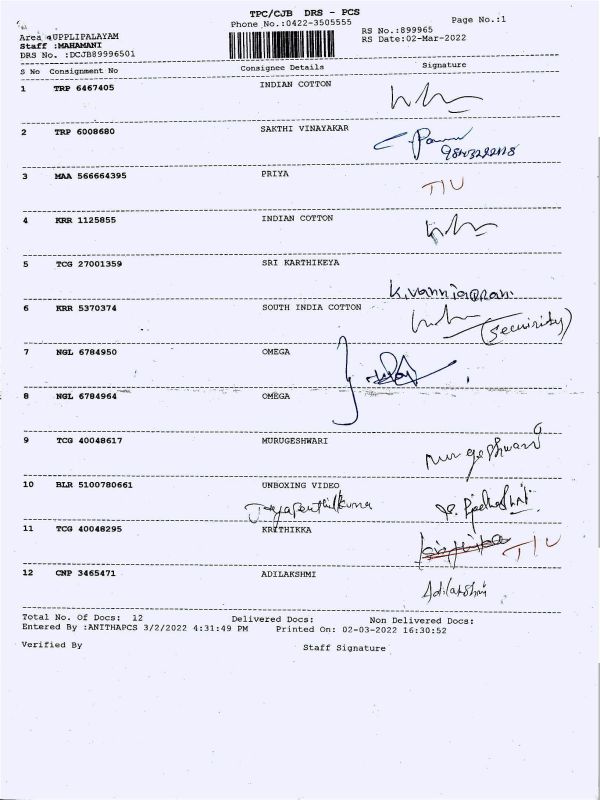 TPC/CJB DRS - PCS
Phone No.:0422-3505555
Page No.:1
Area :UPPLIPALAYAM
RS No.:899965
Staff :MAHAMANI
RS Date:02-Mar-2022
DRS No. :DCJB89996501
S No Consignment No Consignee Details Signature
1 TRP 6467405 INDIAN COTTON
2 TRP 6008680 SAKTHI VINAYAKAR
3 MAA 566664395 PRIYA
4 KRR 1125855 INDIAN COTTON
5 TCG 27001359 SRI KARTHIKEYA
6 KRR 5370374 SOUTH INDIA COTTON
7 NGL 6784950 OMEGA
8 NGL 6784964 OMEGA
9 TCG 40048617 MURUGESHWARI
murugeshwari
10 BLR 5100780661 UNBOXING VIDEO
11 TCG 40048295 KRITHIKKA
12 CNP 3465471 ADILAKSHMI
Adilakshmi
Total No. Of Docs: 12 Delivered Docs: Non Delivered Docs:
Entered By :ANITHAPCS 3/2/2022 4:31:49 PM Printed On: 02-03-2022 16:30:52
Verified By Staff Signature